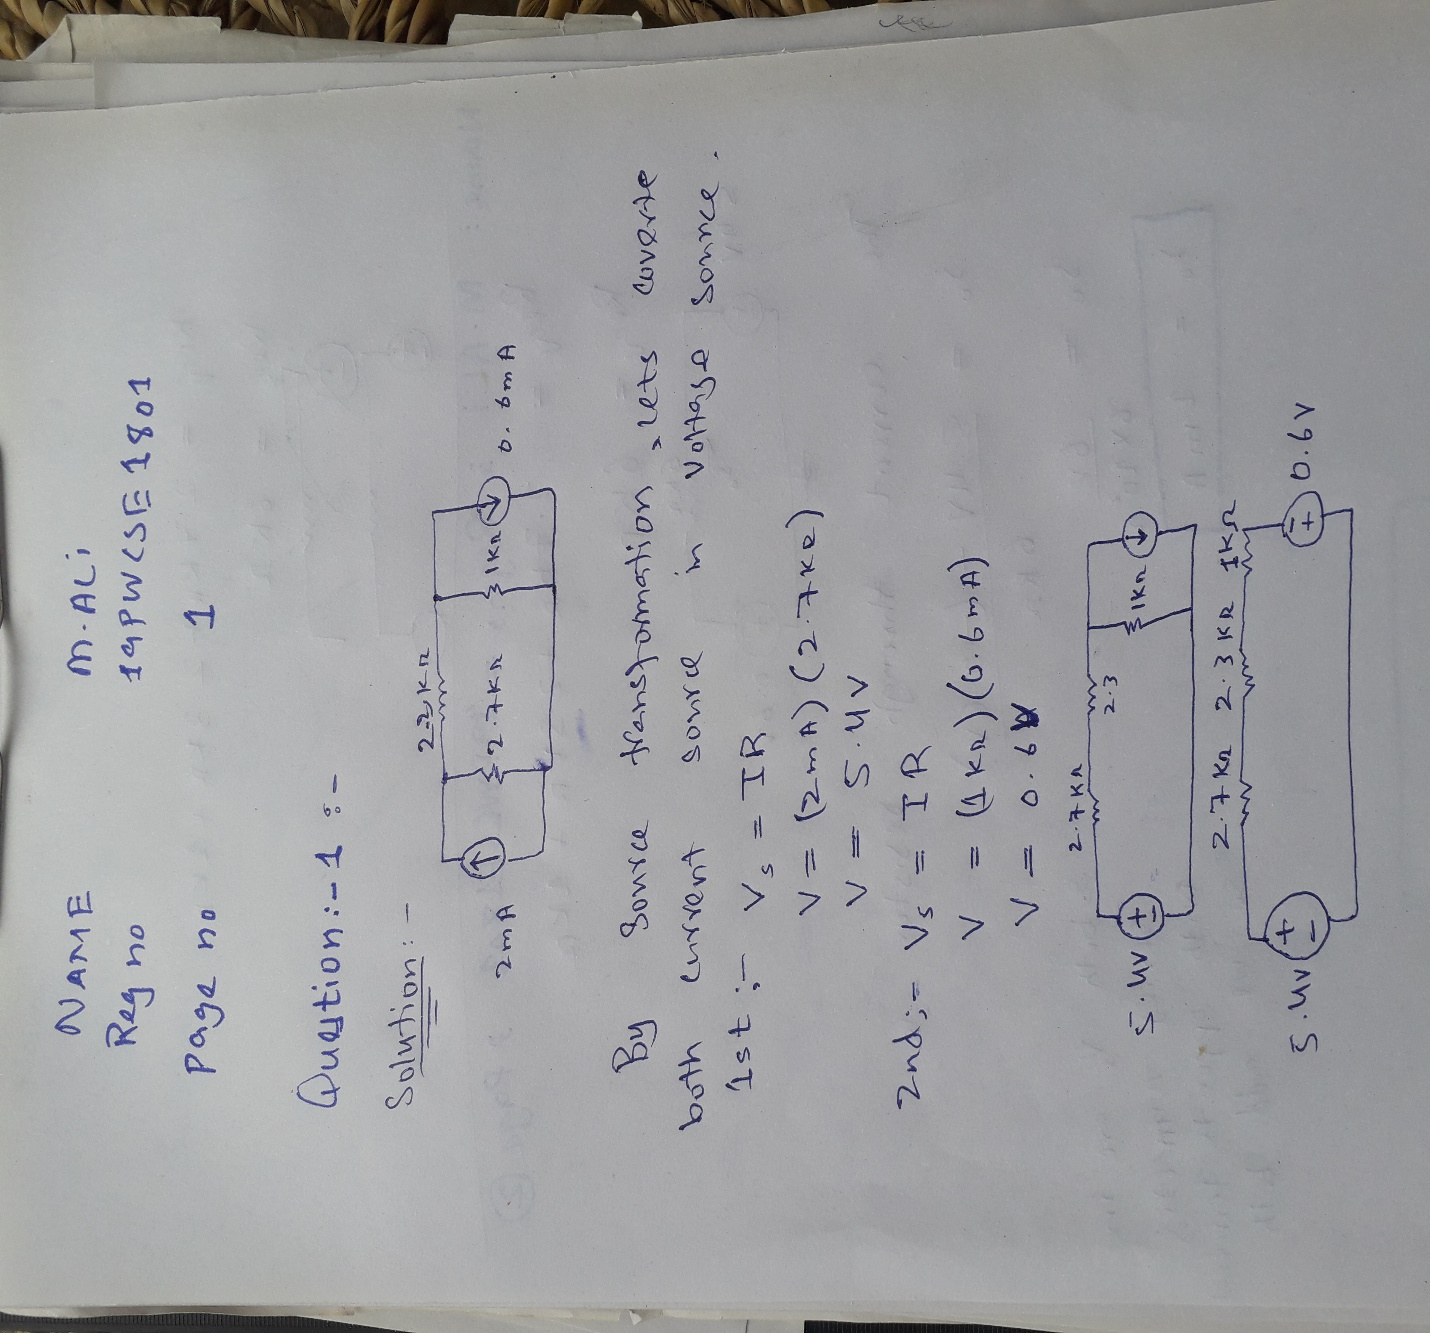 NAME M.ALi
Reg no 19PWCSE1801
page no 1
Question:-1 :-
Solution:-
2.2KΩ
2mA 2.7KΩ 1KΩ 0.6mA
By Source transformation, Lets coverte
both current source in voltage source.
1st :- Vs = IR
V = (2mA) (2.7KΩ)
V = 5.4V
2nd;- Vs = IR
V = (1KΩ) (0.6mA)
V = 0.6V
2.7KΩ 2.3
5.4V 1KΩ
2.7KΩ 2.3KΩ 1KΩ
5.4V 0.6V